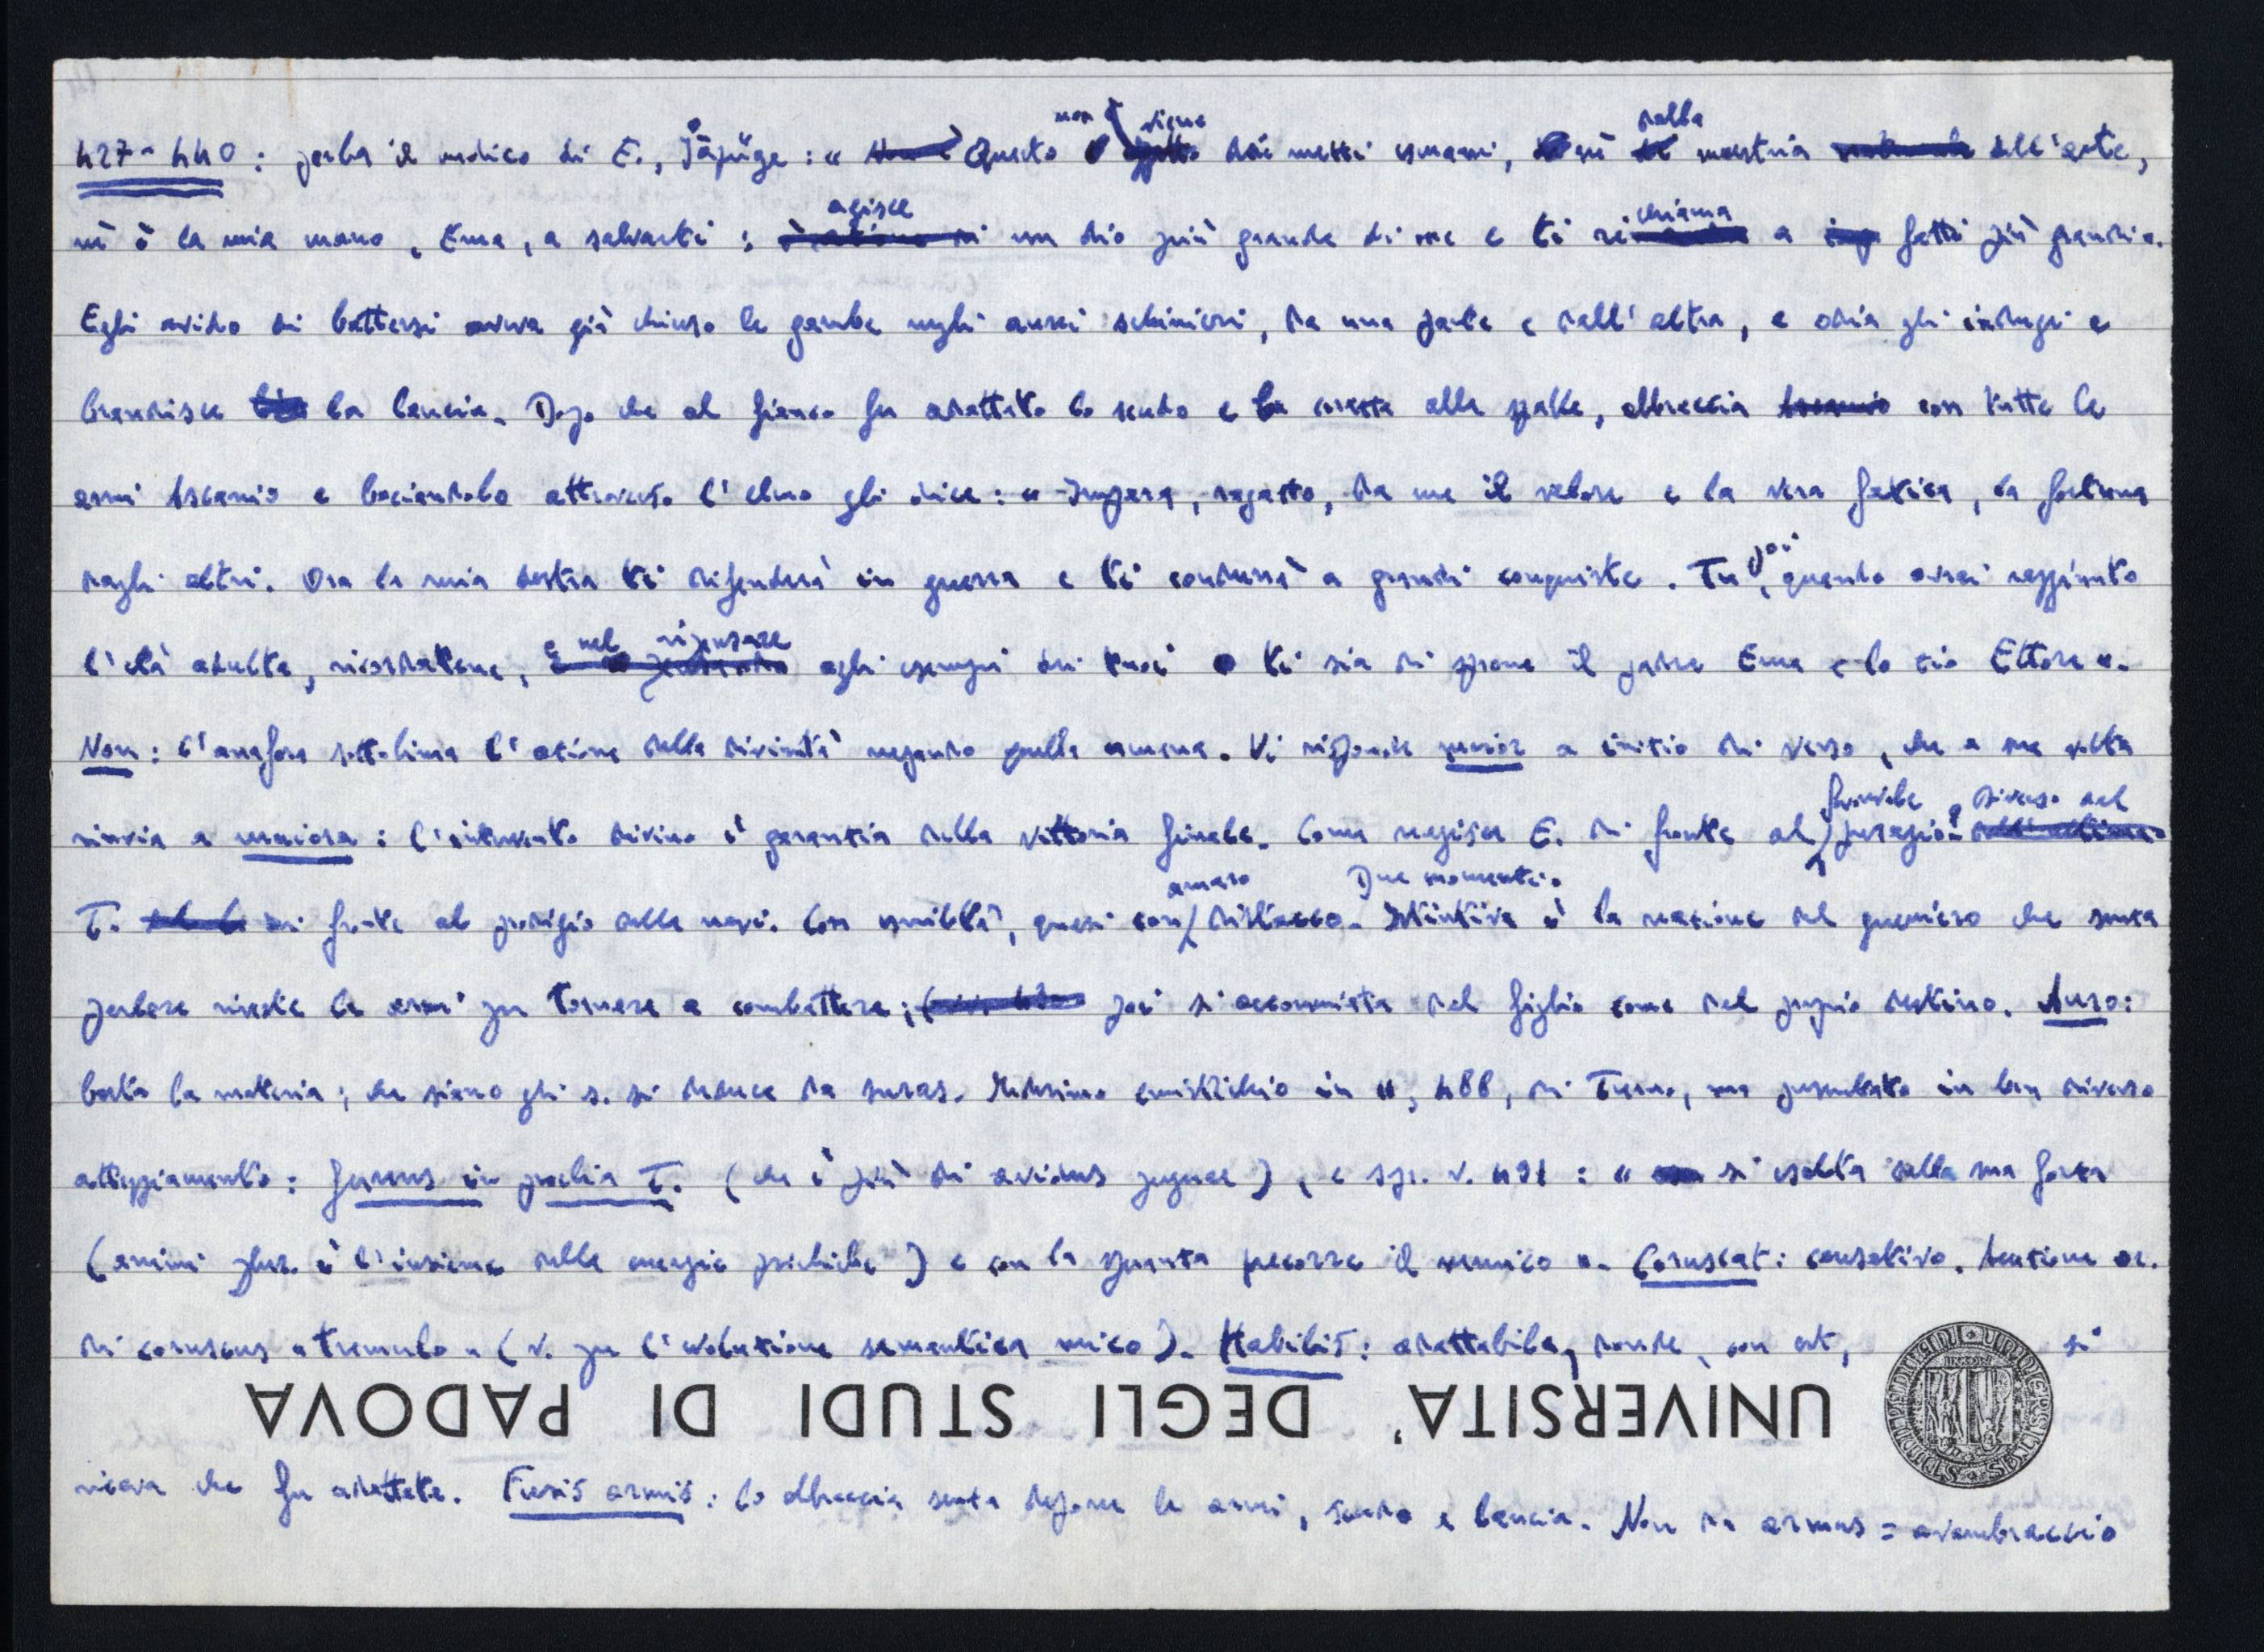 427-440: parla il medico di E., Iāpige: « Questo non viene dai mezzi umani, nè dalla maestria dell'arte,
nè è la mia mano, Enea, a salvarti: agisce un dio più grande di me e ti richiama a fatti più grandi».
Egli avido di battersi aveva già chiuso le gambe negli aurei schinieri, da una parte e dall'altra, e odia gli indugi e
brandisce la lancia. Dopo che al fianco fu adattato lo scudo e la corazza alle spalle, abbraccia con tutte le
armi Ascanio e baciandolo attraverso l'elmo gli dice: « Impara, ragazzo, da me il valore e la vera fatica, la fortuna
dagli altri. Ora la mia destra ti difenderà in guerra e ti condurrà a grandi conquiste. Tu poi, quando avrai raggiunto
l'età adulta, ricordatene, e nel ripensare agli esempi dei tuoi ti sia di sprone il padre Enea e lo zio Ettore ».
Non: l'anafora sottolinea l'azione della divinità negando quella umana. Vi risponde maior a inizio di verso, che a sua volta
rinvia a maiora: l'intervento divino è garanzia della vittoria finale. Come reagisce E. di fronte al favorevole prodigio? Diverso dal
T. di fronte al prodigio delle navi. Con umiltà, quasi con amaro distacco. Due momenti. Istintiva è la reazione del guerriero che senza
parlare riveste le armi per tornare a combattere; poi si accomiata dal figlio come dal proprio destino. Auro:
basta la materia; che siano gli s. si deduce da suras. Medesimo emistichio in 11, 488, di Turno, ma presentato in ben diverso
atteggiamento: furens in proelia T. (che è più di avidus pugnae), e spr. v. 491: « si esalta della sua forza
(animi plur. è l'insieme delle energie psichiche) e con la speranza precorre il nemico ». Coruscat: causativo. Accezione or.
di coruscus « tremulo » (v. per l'evoluzione semantica mico). Habilis: adattabile, donde, con est, si
UNIVERSITA' DEGLI STUDI DI PADOVA
ricava che fu adattata. Fusis armis: lo abbraccia senza deporre le armi, scudo e lancia. Non da armus = avambraccio